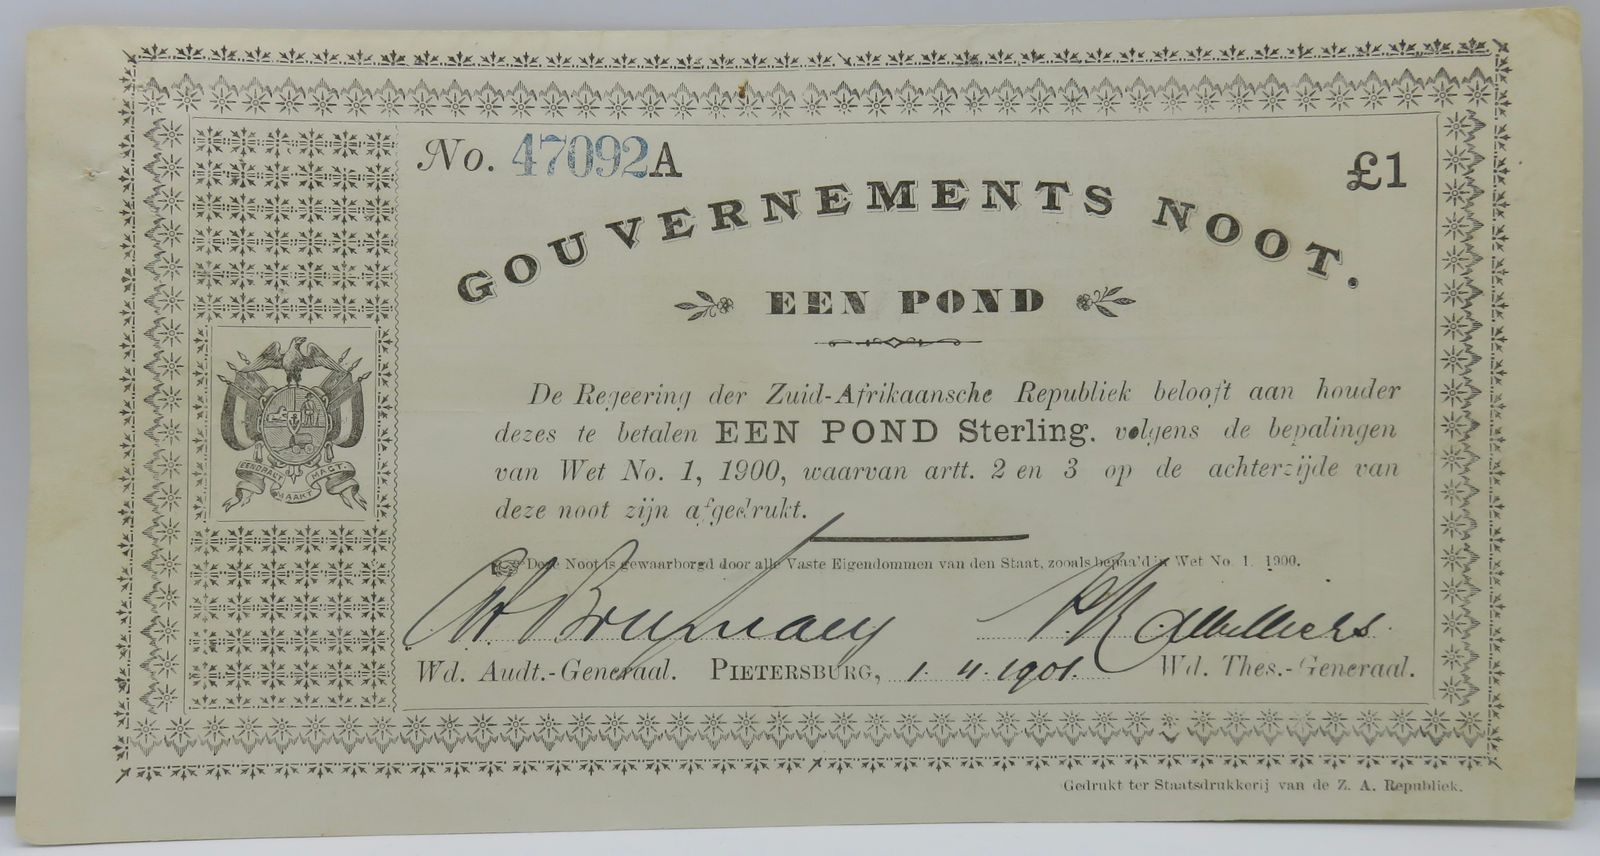 No. 47092A
£1
GOUVERNEMENTS NOOT.
EEN POND
De Regeering der Zuid-Afrikaansche Republiek belooft aan houder
dezes te betalen EEN POND Sterling, volgens de bepalingen
van Wet No. 1, 1900, waarvan artt. 2 en 3 op de achterzijde van
deze noot zijn afgedrukt.
EENDRAGT MAAKT MAGT.
Deze Noot is gewaarborgd door alle Vaste Eigendommen van den Staat, zooals bepaa'd in Wet No. 1. 1900.
Wd. Audt.-Generaal. PIETERSBURG, 1. 4. 1901. Wd. Thes.-Generaal.
Gedrukt ter Staatsdrukkerij van de Z. A. Republiek.